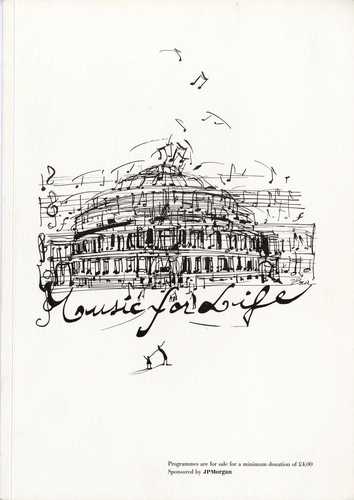 Music for Life
Programmes are for sale for a minimum donation of £4.00
Sponsored by JPMorgan